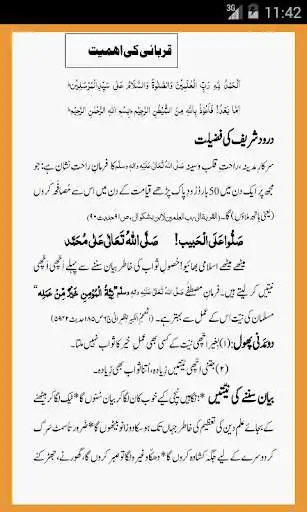 3G 11:42
قربانی کی اہمیت
اَلْحَمْدُ لِلّٰہِ رَبِّ الْعٰلَمِیْنَ وَالصَّلٰوۃُ وَالسَّلَامُ عَلٰی سَیِّدِ الْمُرْسَلِیْنَ ط
اَمَّا بَعْدُ! فَاَعُوْذُ بِاللّٰہِ مِنَ الشَّیْطٰنِ الرَّجِیْمِ ط بِسْمِ اللّٰہِ الرَّحْمٰنِ الرَّحِیْمِ ط
درود شریف کی فضیلت
سرکارِ مدینہ، راحتِ قلب و سینہ صَلَّی اللہُ تَعَالٰی عَلَیْہِ وَاٰلِہٖ وَسَلَّم کا فرمانِ راحت نشان ہے: جو
مجھ پر ایک دن میں 50 بار دُرُودِ پاک پڑھے قیامت کے دن میں اس سے مُصافَحَہ کروں
(یعنی ہاتھ ملاؤں) گا۔ (القربۃ الی رب العلمین لابن بشکوال، ص۹۰ حدیث ۹۰)
صَلُّوْا عَلَی الْحَبِیْب! صَلَّی اللہُ تَعَالٰی عَلٰی مُحَمَّد
میٹھے میٹھے اسلامی بھائیو! حُصُولِ ثواب کی خاطر بیان سننے سے پہلے اچھی اچھی
نیتیں کر لیتے ہیں۔ فرمانِ مصطفےٰ صَلَّی اللہُ تَعَالٰی عَلَیْہِ وَاٰلِہٖ وَسَلَّم ”نِیَّۃُ الْمُؤْمِنِ خَیْرٌ مِّنْ عَمَلِہٖ“
مسلمان کی نیّت اس کے عمل سے بہتر ہے۔ (المعجم الکبیر للطبرانی ج۶ ص۱۸۵ حدیث ۵۹۴۲)
دو مَدَنی پھول: (۱) بغیر اچھی نیّت کے کسی بھی عملِ خیر کا ثواب نہیں ملتا۔
(۲) جتنی اچھی نیّتیں زیادہ، اُتنا ثواب بھی زیادہ۔
بیان سننے کی نیّتیں * نگاہیں نیچی کیے خوب کان لگا کر بیان سُنوں گا * ٹیک لگا کر بیٹھنے
کے بجائے علمِ دین کی تعظیم کی خاطر جہاں تک ہو سکا دو زانو بیٹھوں گا * ضرورتاً سمٹ سرک
کر دوسرے کے لیے جگہ کشادہ کروں گا * دھکّا وغیرہ لگا تو صبر کروں گا، گھورنے، جھڑکنے